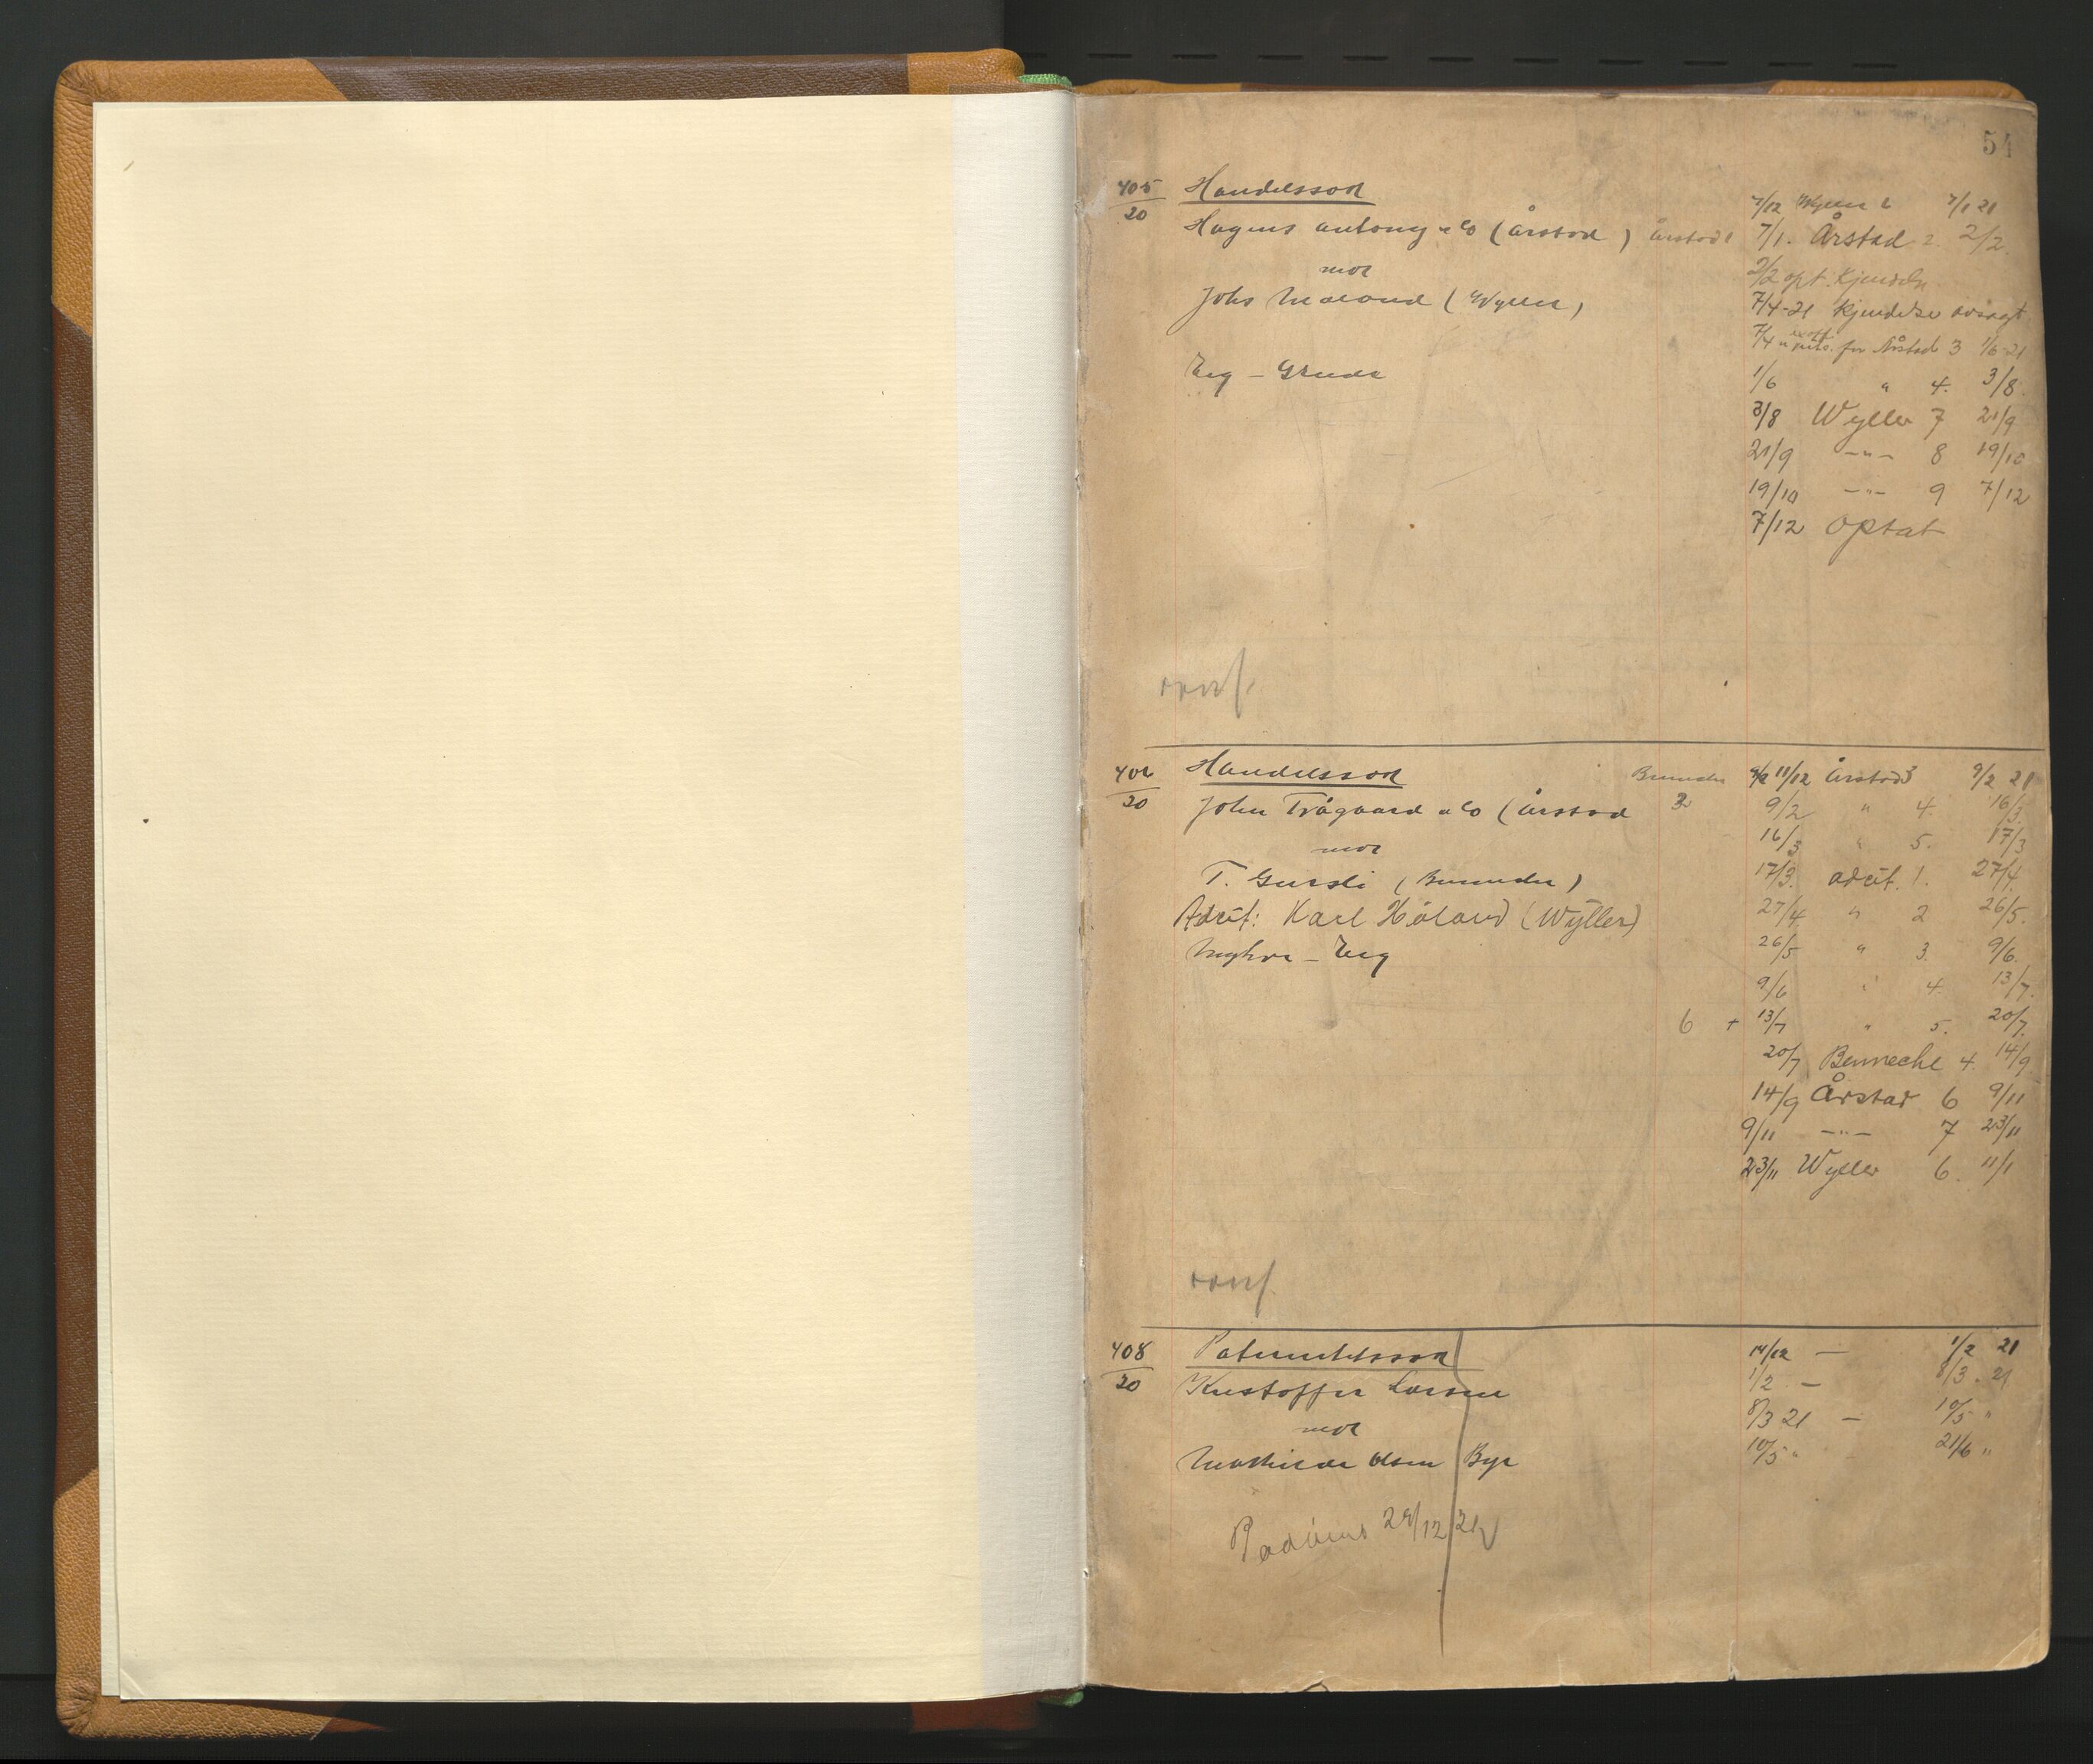 54
405/20 Handelssak
Hagens autong & Co (Årstad) Årstad 1
mot
Johs Maland (Wyller)
Eeg - Grude
7/12 Wyller 2 7/1 21
7/1. Årstad 2. 2/2.
2/2 opt. Kjendelse
7/4-21 Kjendelse avsagt
7/4 for Årstad 3 1/6-21
1/6 " 4. 3/8.
3/8 Wyller 7 21/9
21/9 -"- 8 19/10
19/10 -"- 9 7/12
7/12 optat
overf.
406/20 Handelssak
John Trågaard & Co (Årstad
mot
T. Gursli (Benneche)
Adcit: Karl Håland (Wyller)
- Eeg
Benneche
3
11/12 Årstad 3 9/2 21
9/2 " 4. 16/3.
16/3 " 5. 17/3
17/3. adcit. 1. 27/4.
27/4 " 2 26/5.
26/5 " 3. 9/6.
9/6 " 4. 13/7.
6 + 13/7 " 5. 20/7.
20/7 Benneche 4. 14/9
14/9 Årstad 6 9/11
9/11 -"- 7 23/11
23/11 Wyller 6. 11/1
overf.
408/20 Paternitetssak
Kristoffer Larsen
mot
Mathilde Olsen Bye
14/12 - 1/2 21
1/2 - 8/3. 21
8/3 21 - 10/5 "
10/5 " 21/6 "
29/12 21